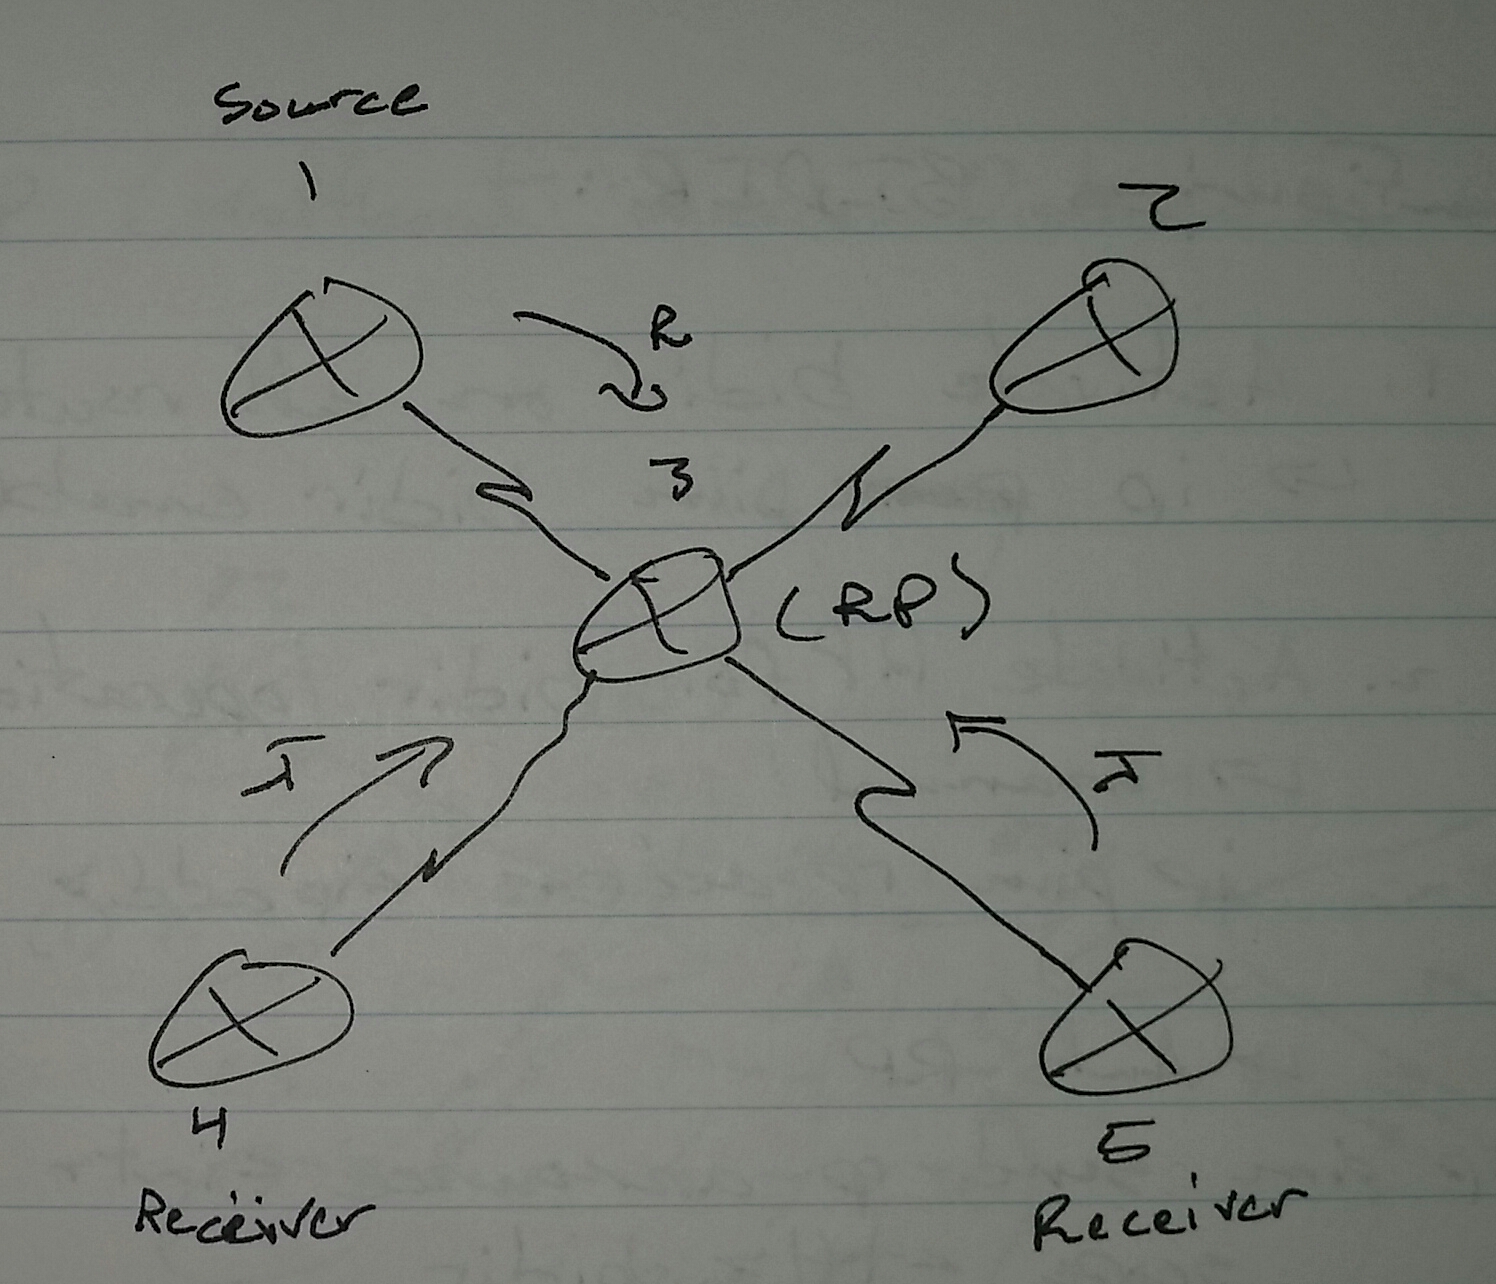 Source
1
2
R
3
(RP)
J
J
4
5
Receiver
Receiver